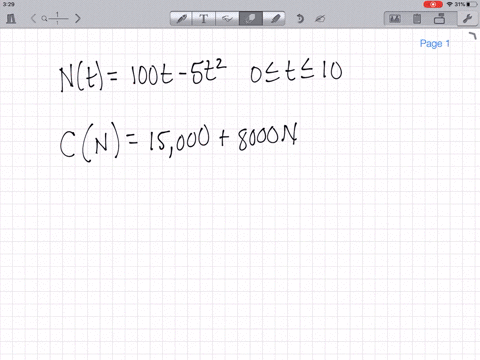 3:29
31%
Page 1
N(t) = 100t - 5t² 0 ≤ t ≤ 10
C(N) = 15,000 + 8000N